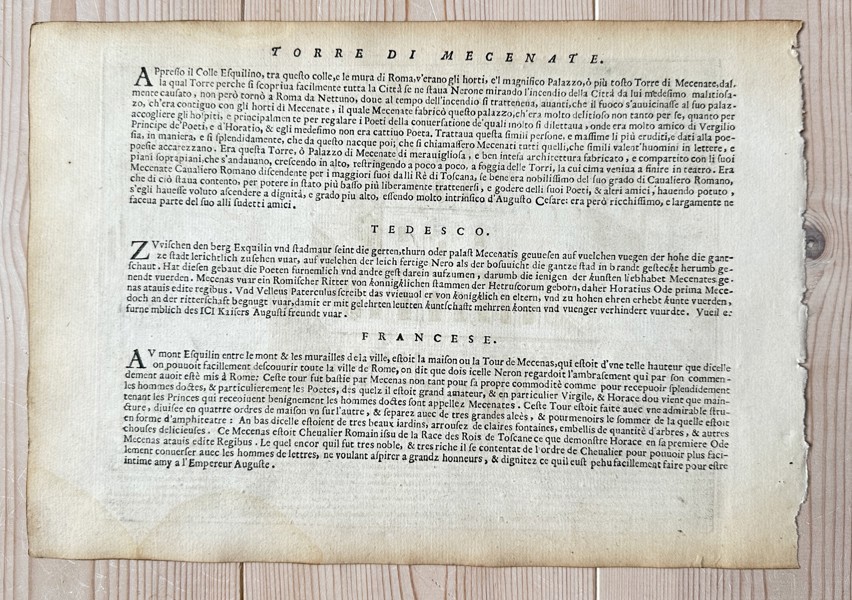 TORRE DI MECENATE.
APpresso il Colle Esquilino, tra questo colle, e le mura di Roma, v'erano gli horti, e'l magnifico Palazzo, ò più tosto Torre di Mecenate, dal-
la qual Torre perche si scopriua facilmente tutta la Città se ne staua Nerone mirando l'incendio della Città da lui medesimo malitiosa-
mente causato, non però tornò a Roma da Nettuno, doue al tempo dell'incendio si tratteneua, auanti, che il fuoco s'auuicinasse al suo palaz-
zo, ch'era contiguo con gli horti di Mecenate, il quale Mecenate fabricò questo palazzo, ch'era molto delitioso non tanto per se, quanto per
accogliere gli hospiti, e principalmente per regalare i Poeti della conuersatione de'quali molto si dilettaua, onde era molto amico di Vergilio
Principe de'Poeti, e d'Horatio, & egli medesimo non era cattiuo Poeta. Trattaua questa simil persone, e massime li più eruditi, e dati alla poe-
sia, in maniera, e si splendidamente, che da questo nacque poi; che si chiamassero Mecenati tutti quelli, che simili valent'huomini in lettere, e
poesie accarezzano. Era questa Torre, ò Palazzo di Mecenate di merauigliosa, e ben intesa architettura fabricato, e compartito con li suoi
piani soprapiani, che s'andauano, crescendo in alto, restringendo a poco a poco, a foggia delle Torri, la cui cima veniua a finire in teatro. Era
Mecenate Caualiero Romano discendente per i maggiori suoi dalli Rè di Toscana, se bene era nobilissimo del suo grado di Caualiero Romano,
che di ciò staua contento, per potere in stato più basso più liberamente trattenersi, e godere delli suoi Poeti, & altri amici, hauendo potuto,
s'egli hauesse voluto ascendere a dignità, e grado piu alto, essendo molto intrinsico d'Augusto Cesare: era però ricchissimo, e largamente ne
faceua parte del suo alli sudetti amici.
TEDESCO.
ZVvischen den berg Exquilin vnd stadmaur seint die gerten, thurn oder palast Mecenatis geuuesen auf vuelchen vuegen der hohe die gant-
ze stadt lerichtlich zusehen vuar, auf vuelchen der leich fertige Nero als der bosuuicht die gantze stad in brande gesteckt herumb ge-
schaut. Hat diesen gebaut die Poeten furnemlich vnd andre gest darein aufzumen, darumb die ienigen der kunsten liebhabet Mecenates ge-
nendt vuerden. Mecenas vuar ein Romischer Ritter von konnigklichen stammen der Hetruscorum geborn, daher Horatius Ode prima Mece-
nas atauis edite regibus. Vnd Velleus Paterculus screibt das vvieuuol er von konigklich en eltern, vnd zu hohen ehren erhebt kunte vuerden,
doch an der ritterschaft begnugt vuar, damit er mit gelehrten leutten kuntschaft mehrren konten vnd vuenger verhindert vuurdte. Vueil er
furne mblich des ICI Kaisers Augusti freundt vuar.
FRANCESE.
AV mont Esquilin entre le mont & les murailles de la ville, estoit la maison ou la Tour de Mecenas, qui estoit d'vne telle hauteur que dicelle
on pouuoit facillement descouurir toute la ville de Rome, on dit que dois icelle Neron regardoit l'ambrasement qui par son commen-
dement auoit estè mis à Rome: Ceste tour fut bastie par Mecenas non tant pour sa propre commodité comme pour recepuoir splendidement
les hommes doctes, & particulierement les Poetes, des quelz il estoit grand amateur, & en particulier Virgile, & Horace dou vient que main-
tenant les Princes qui reçoiuent benignement les hommes doctes sont appellez Mecenates. Ceste Tour estoit faite auec vne admirable stru-
cture, diuisee en quattre ordres de maison vn sur l'autre, & separez auec de tres grandes aleès, & pourmenoirs le sommer de la quelle estoit
en forme d'amphiteatre: An bas dicelle estoient de tres beaux iardins, arrousez de claires fontaines, embellis de quantitè d'arbres, & autres
chouses delicieuses. Ce Mecenas estoit Cheualier Romain issu de la Race des Rois de Toscane ce que demonstre Horace en sa premiere Ode
Mecenas atauis edite Regibus. Le quel encor quil fut tres noble, & tres riche il se contentat de l'ordre de Cheualier pour pouuoir plus faci-
lement conuerser auec les hommes de lettres, ne voulant aspirer a grandz honneurs, & dignitez ce quil eust pehu facillement faire pour estre
intime amy a l'Empereur Auguste.